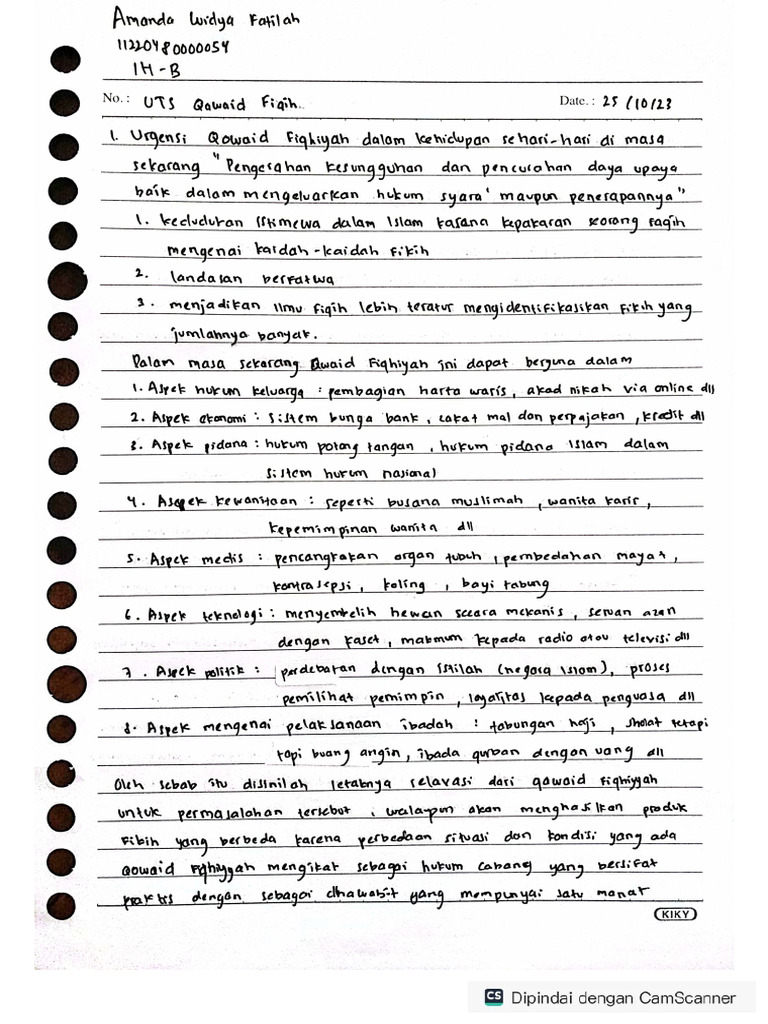 Amanda Widya Fatilah
11220480000054
IH-B
No.: UTS Qawaid Fiqih.. Date.: 25/10/23
1. Urgensi Qawaid Fiqhiyah dalam kehidupan sehari-hari di masa
sekarang "Pengerahan kesungguhan dan pencurahan daya upaya
baik dalam mengeluarkan hukum syara' maupun penerapannya"
1. kedudukan istimewa dalam Islam karana kepakaran seorang faqih
mengenai kaidah-kaidah Fikih
2. landasan berfatwa
3. menjadikan Ilmu fiqih lebih teratur mengidentifikasikan fikih yang
jumlahnya banyak.
Dalam masa sekarang Qwaid Fiqhiyah ini dapat berguna dalam
1. Aspek hukum keluarga : pembagian harta waris, akad nikah via online dll
2. Aspek ekonomi : Sistem bunga bank, zakat mal dan perpajakan, kredit dll
3. Aspek pidana : hukum potong tangan, hukum pidana Islam dalam
Sistem hukum nasional
4. Aspek kewanitaan : seperti busana muslimah, wanita karir,
kepemimpinan wanita dll
5. Aspek medis : pencangkakan organ tubuh, pembedahan mayat,
kontrasepsi, koling, bayi tabung
6. Aspek teknologi : menyembelih hewan secara mekanis, seruan azan
dengan kaset, makmum kepada radio atau televisi dll
7. Aspek politik : perdebatan dengan istilah (negara Islam), proses
pemilihat pemimpin, loyalitas kepada penguasa dll
8. Aspek mengenai pelaksanaan ibadah : tabungan haji, sholat tetapi
tapi buang angin, ibada qurban dengan uang dll
Oleh sebab itu disinilah letaknya relavasi dari qawaid fiqhiyyah
untuk permasalahan tersebut, walaupun akan menghasilkan produk
Fikih yang berbeda karena perbedaan situasi dan kondisi yang ada
Qowaid Fiqhiyyah mengikat sebagai hukum cabang yang bersifat
praktis dengan sebagai dhawabit yang mempunyai satu manat
KIKY
CS Dipindai dengan CamScanner